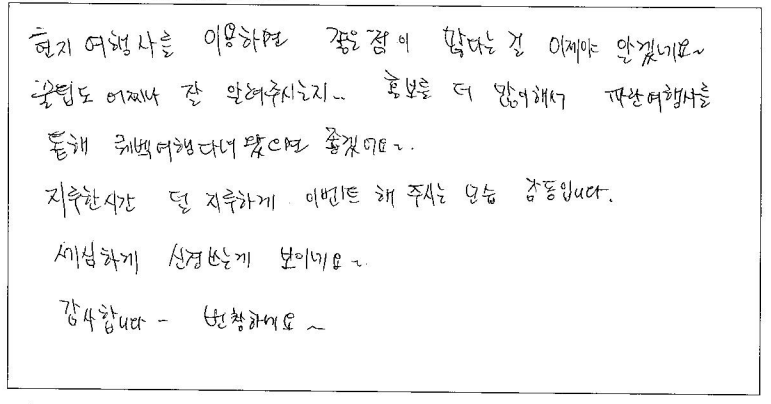 현지 여행사를 이용하면 좋은점이 많다는 걸 이제야 알겠네요~
꿀팁도 어찌나 잘 알려주시는지.. 홍보를 더 많이해서 파란여행사를
통해 퀘벡여행다녀 왔으면 좋겠어요~.
지루한시간 덜 지루하게 이벤트 해 주시는 모습 감동입니다.
세심하게 신경쓰는게 보이네요~
감사합니다- 번창하세요~